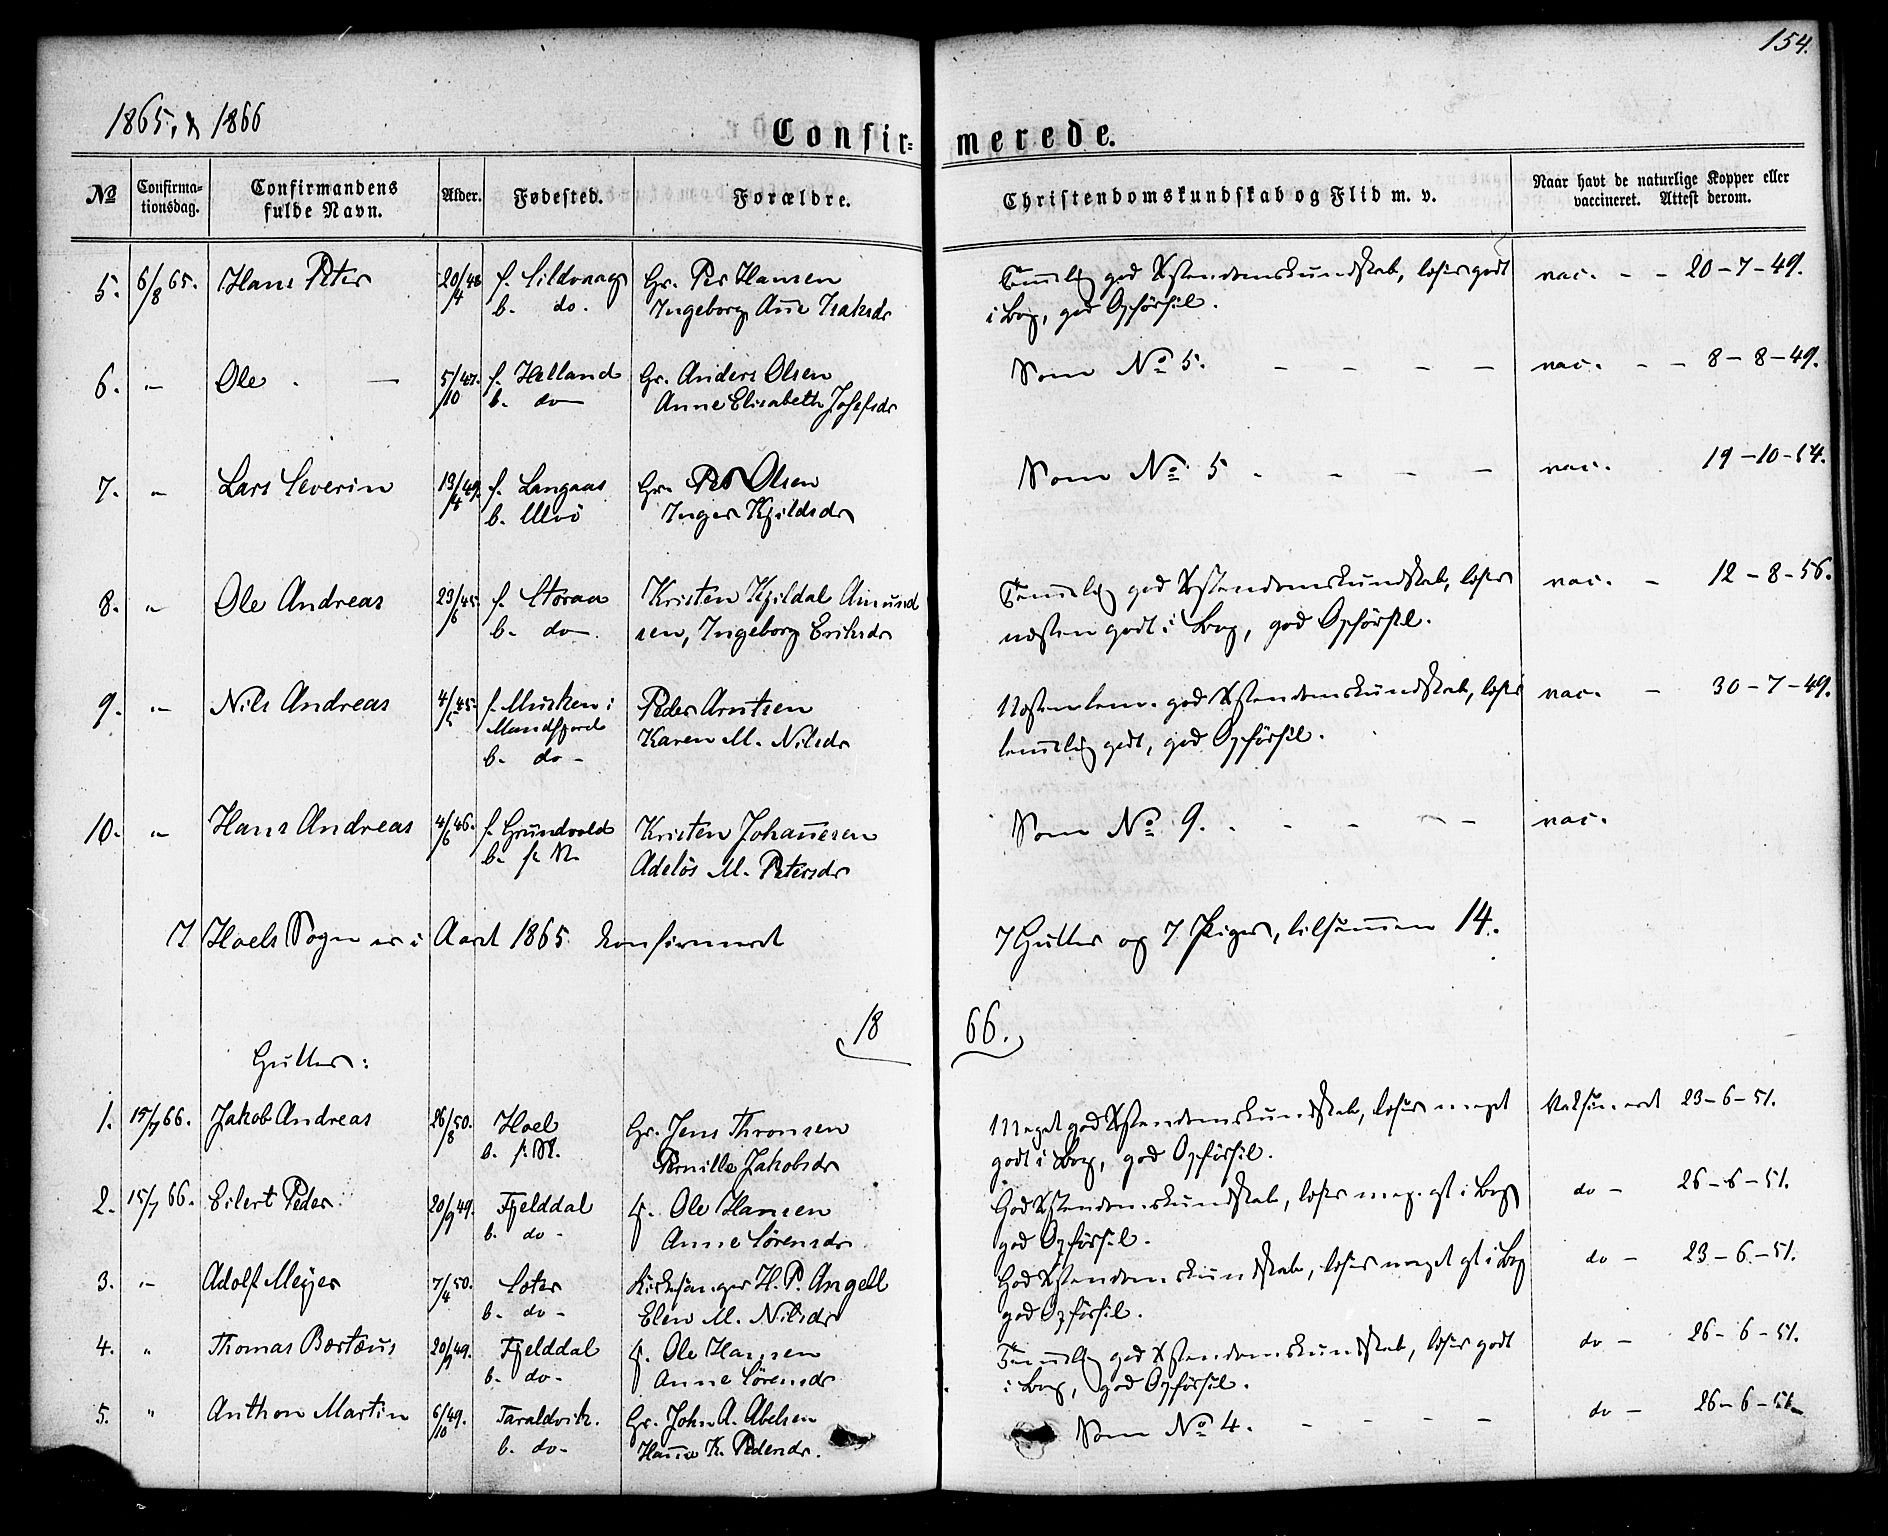 154.
1865, & 1866
Confir= merede.
No
Confirma-
tionsdag.
Confirmandens
fulde Navn.
Alder.
Fødested.
Forældre.
Christendomskundskab og Flid m. v.
Naar havt de naturlige Kopper eller
vaccineret. Attest derom.
5. 6/8 65. Hans Peter 20/4 48 f. Sildvaag Gr. Per Hansen Temmelig god Xstendomskundskab, læser godt vac. - - 20-7-49.
b. do. Ingeborg Anne Isaksdr i Bog, god Opførsel.
6. " Ole - 5/10 47. f. Helland Gr. Anders Olsen Som No 5. - - - - vac. - - 8-8-49.
b. do Anne Elisabeth Josefsdr
7. " Lars Severin 13/4 49. f. Langaas Gr. Per Olsen Som No 5 - - - - vac. 19-10-54.
b. Ulvö Inger Kjeldsdr
8. " Ole Andreas 23/6 45. f. Storaa Kristen Kjildal Amund Temmelig god Xstendomskundskab, læser vac. - 12-8-56.
b. do sen, Ingeborg Eriksdr næsten godt i Bog, god Opförsel.
9. " Nils Andreas 4/5 45. f. Musken i Peder Arntsen Næsten tem. god Xstendomskundskab, læser vac. - 30-7-49.
Mandfjord
b. do - Karen M. Nilsdr temmelig godt, god Opförsel.
10. " Hans Andreas 4/6 46. f. Grundvold Kristen Johannesen Som No 9. - - - - vac.
b. f. M. Adelös M. Petersdr
I Hoels Sogn er i Aaret 1865 konfirmeret 7 Gutter og 7 Piger, tilsammen 14.
18 66.
Gutter:
1. 15/7 66. Jakob Andreas 26/8 50. Hoel Gr. Jens Thronsen Meget god Xstendomskundskab, læser meget Vaksineret 23-6-51.
b. f. M. Pernille Jakobsdr godt i Bog, god Opførsel.
2. 15/7 66. Eilert Peder 20/9 49. Fjelddal f. Ole Hansen God Xstendomskundskab, læser meg. gt i Bog do - 26-6-51.
b. do - Anne Sörensdr. god Opførsel.
3. " Adolf Meÿer 7/4 50. Soter Kirkesanger H. P. Angell God Xstendomskundskab, læser meget gt i Bog do - 23-6-51.
b. do - Elen M. Nilsdr god Opførsel.
4. " Thomas Bertæus 20/9 49. Fjelddal f. Ole Hansen Temmelig god Xstendomskundskab, læser godt do - 26-6-51.
b. do - Anne Sörensdr i Bog, god Opførsel.
5. " Anthon Martin 6/10 49. Taraldvik. Gr. John A. Abelsen Som No 4. - - - - do - 26-6-51.
b. do - Hanna K. Pedersdr.